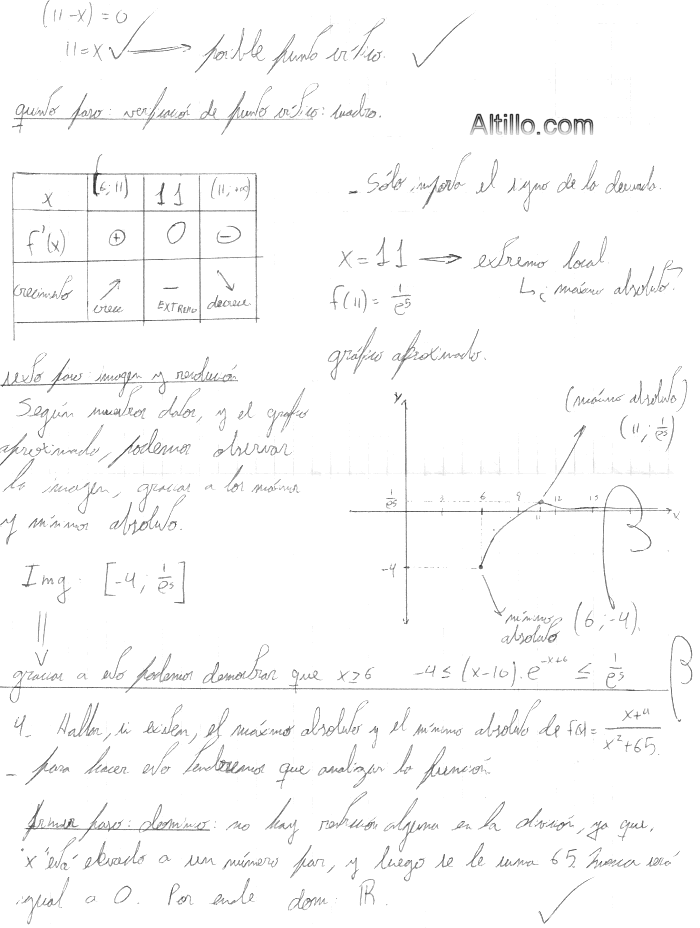 (11-x) = 0
11 = x → posible punto crítico.
quinto paso: verificación de punto crítico: cuadro.
Altillo.com
x [6; 11) 11 (11; +∞)
f'(x) ⊕ 0 ⊖
crecimiento ↗ crece — EXTREMO ↘ decrece
- Sólo importa el signo de la derivada.
x = 11 → extremo local
f(11) = 1/e⁵ ↳ ¿máximo absoluto?
gráfico aproximado.
sexto paso: imagen y resolución
Según nuestros datos, y el grafico
aproximado, podemos observar
la imagen, gracias a los máximos
y mínimos absolutos.
Img: [-4; 1/e⁵]
y
(máximo absoluto)
(11; 1/e⁵)
1/e⁵ 3 6 9 11 12 15 x
-4
mínimo absoluto (6; -4).
gracias a esto podemos demostrar que x≥6 -4 ≤ (x-10).e^(-x+6) ≤ 1/e⁵
4- Hallar, si existen, el máximo absoluto y el mínimo absoluto de f(x) = (x+4)/(x²+65).
- para hacer esto tendremos que analizar la función.
primer paso: dominio: no hay restricción alguna en la división, ya que,
"x" está elevado a un número par, y luego se le suma 65. Nunca será
igual a 0. Por ende dom: ℝ.